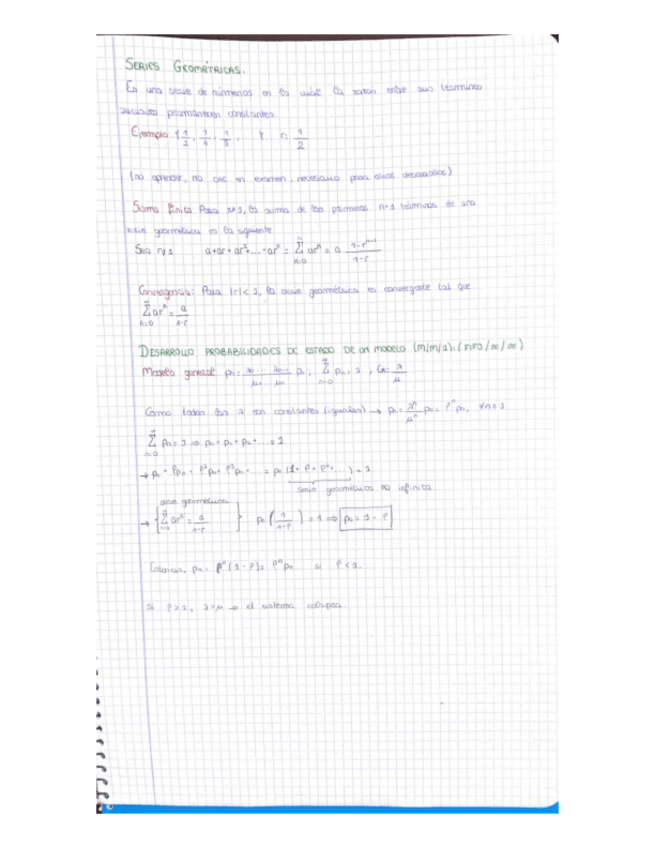 SERIES GEOMÉTRICAS.
Es una serie de números en la cual la razón entre sus términos
permanecen constantes.
Ejemplo: { 1/2, 1/4, 1/8, } r = 1/2
(no aprender, no cae en examen, necesario para otros desarrollos)
Suma finita Para n≥1, la suma de los primeros n+1 términos de una
serie geométrica es la siguiente
Sea r≠1 a+ar+ar²+...+arⁿ = Σ arⁿ = a 1-rⁿ⁺¹/1-r
n=0
Convergencia: Para |r|<1, la serie geométrica es convergente tal que
Σ arⁿ = a/1-r
n=0
DESARROLLO PROBABILIDADES DE ESTADO DE UN MODELO (M/M/1):(FIFO/∞/∞)
Modelo general pₙ = p₀, Σ pₙ = 1, = λ/μ
n=0
Como todos los λ son constantes (iguales) → pₙ = λⁿ/μⁿ p₀ = ρⁿ p₀, ∀n≥1
Σ pₙ = 1 ⇒ p₀ + p₁ + p₂ + ... = 1
n=0
→ p₀ + ρp₀ + ρ²p₀ + ρ³p₀ + ... = p₀ (1 + ρ + ρ² + ...) = 1
serie geométrica no infinita
serie geométrica
→ { Σ arⁿ = a/1-r } p₀ (1/1-ρ) = 1 ⇒ p₀ = 1 - ρ
n=0
Entonces, pₙ = ρⁿ (1-ρ) = ρⁿ p₀ si ρ<1.
Si ρ≥1, → el sistema colapsa.